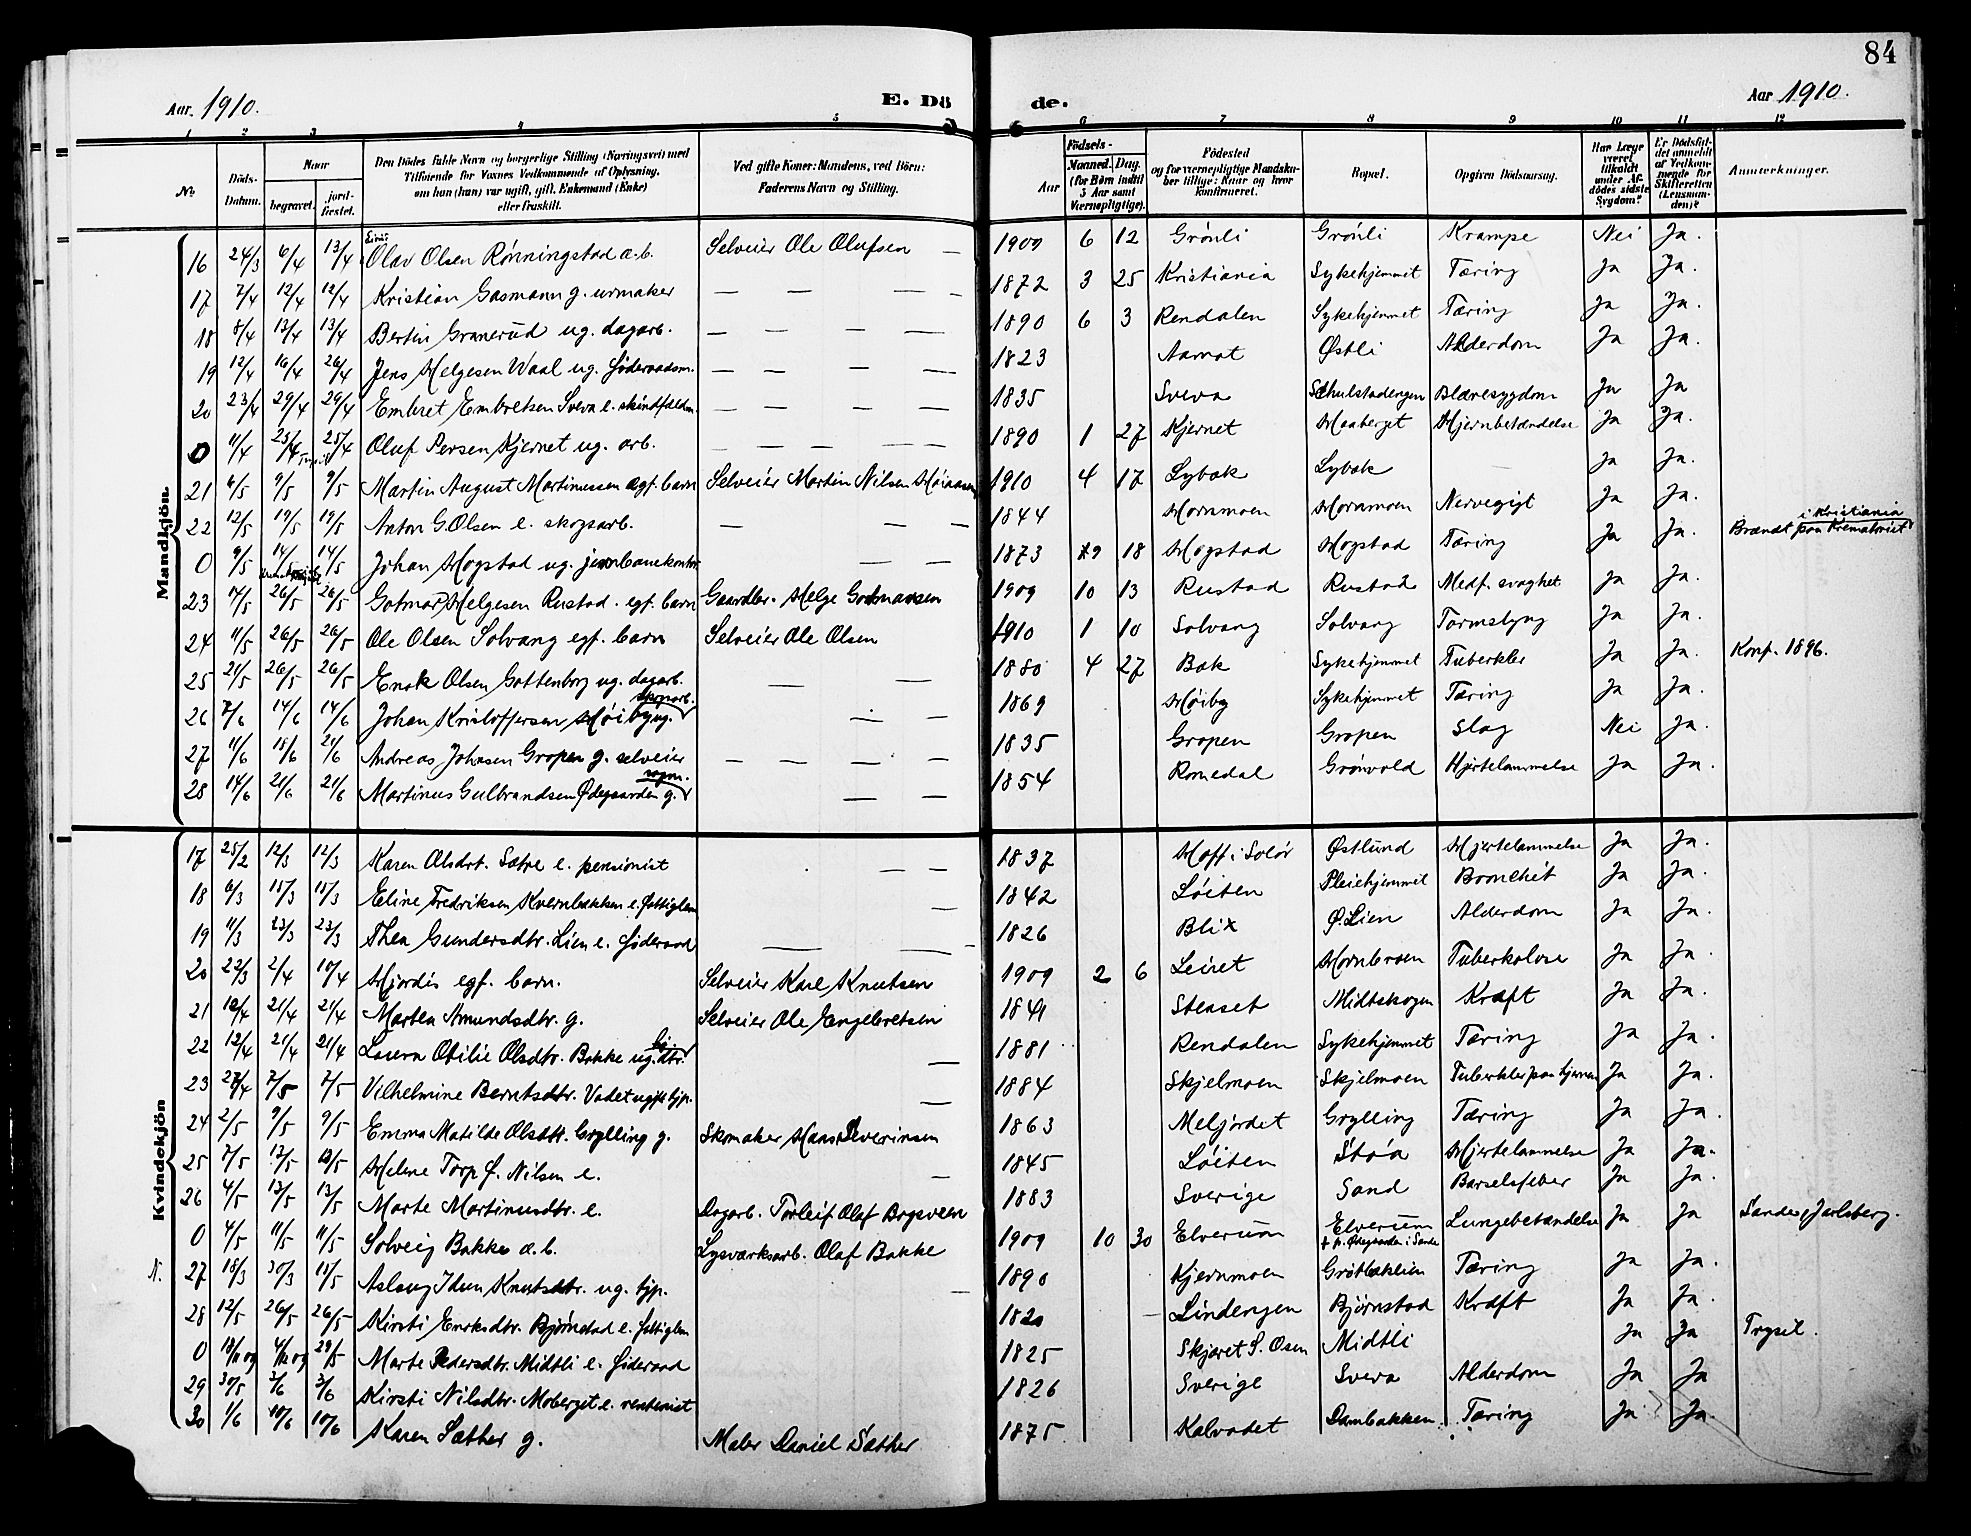 84
Aar 1910. E. Dö de. Aar 1910.
1 2 3 4 5 6 7 8 9 10 11 12
No Döds-Datum. Naar begravet. jord-fæstet. Den Dödes fulde Navn og borgerlige Stilling (Næringsvei) med Tilföiende for Voxnes Vedkommende af Oplysning, om han (hun) var ugift, gift, Enkemand (Enke) eller fraskilt. Ved gifte Koner: Mandens, ved Börn: Faderens Navn og Stilling. Födsels- Aar Maaned. Dag. (for Börn indtil 3 Aar samt Værnepligtige). Födested og for værnepligtige Mandskaber tillige: Naar og hvor konfirmeret. Bopæl. Opgiven Dödsaarsag. Har Læge været tilkaldt under Afdödes sidste Sygdom? Er Dödsfaldet anmeldt af Vedkommende for Skifteretten (Lensmanden)? Anmerkninger.
Mandkjön.
16 24/3 6/4 13/4 Olav Olsen Rønningstad a.b. Selveier Ole Olufsen — 1909 6 12 Grönli Grönli Krampe Nei Ja.
17 7/4 12/4 12/4 Kristian Gasmann g. urmaker — — — — 1872 3 25 Kristiania Sykehjemmet Tæring Ja Ja.
18 8/4 13/4 13/4 Bertin Granerud ug. dagarb. — — — — 1890 6 3 Rendalen Sykehjemmet Tæring Ja Ja.
19 12/4 16/4 26/4 Jens Helgesen Waal ug. föderaadsm. — — — — 1823 Aamot Østli Alderdom Ja Ja.
20 23/4 29/4 29/4 Embret Embretsen Sveva e. skindfældm. — — — — 1835 Sveva Schulstadengen Blæresygdom Ja Ja
0 11/4 25/4 25/4 Oluf Persen Kjernet ug. arb. — — — — 1890 1 27 Kjernet Haaberget Hjernbetændelse Ja Ja.
21 6/5 9/5 9/5 Martin August Martinussen egf. barn Selveier Martin Nilsen 1910 4 17 Lybæk Lybæk — Ja Ja.
22 12/5 19/5 19/5 Anton G. Olsen e. skogsarb. — — — 1844 Hornmoen Hornmoen Nervegigt Ja Ja.
0 9/5 14/5 14/5 Johan Hogstad ug. jernbanekontor — — 1873 9 18 Hogstad Hogstad Tæring Ja Ja. Brændt paa Krematoriet i Kristiania
23 7/5 26/5 26/5 Gotmar Helgesen Rustad. egf. barn Gaardbr. Helge Gotmarsen 1909 10 13 Rustad Rustad Medf. svaghet Ja Ja.
24 11/5 26/5 26/5 Ole Olsen Solvang egf. barn Selveier Ole Olsen 1910 1 10 Solvang Solvang Tarmslyng Ja Ja.
25 21/5 26/5 26/5 Enok Olsen Gottenborg ug. dagarb. — — 1880 4 27 Bak Sykehjemmet Tuberkler Ja Ja. Konf. 1896.
26 7/6 14/6 14/6 Johan Kristoffersen Höiby ug. skogarb. — — 1869 Höiby Sykehjemmet Tæring Ja Ja.
27 11/6 18/6 21/6 Andreas Johnsen Gropen g. selveier — — — — 1835 Gropen Gropen Slag Nei Ja.
28 14/6 21/6 21/6 Martinus Gulbrandsen Ødegaarden g. — — 1854 Romedal Grönvold Hjertelammelse Ja Ja.
Kvindekjön
17 25/2 12/3 12/3 Karen Olsdrt. Sætre e. pensionist — — 1837 Hoff i Solör Østlund Hjertelammelse Ja Ja.
18 6/3 15/3 15/3 Eline Fredriksen Kvernbakken e. fattiglem — 1842 Löiten Pleiehjemmet Bronchit Ja Ja.
19 11/3 23/3 23/3 Thea Gundersdtr. Lien e. föderaad — — — 1826 Blix Ø. Lien Alderdom Ja Ja.
20 22/3 2/4 10/4 Hjordis egf. barn. Selveier Karl Knutsen 1909 2 6 Leiret Hornbroen Tuberkolose Ja Ja.
21 12/4 21/4 21/4 Martea Amundsdtr. g. Selveier Ole Engebretsen 1841 Stenset Midtskogen Kræft Ja Ja.
22 12/4 21/4 21/4 Laura Otilie Olsdtr. Bakke ug. — 1881 Rendalen Sykehjemmet Tæring Ja Ja.
23 27/4 7/5 7/5 Vilhelmine Berntsdtr. Vadet ug. tjp. — 1884 Skjelmoen Skjelmoen Tuberkler paa hjernen Ja Ja.
24 2/5 9/5 9/5 Emma Matilde Olsdtr. Grylling g. Skomaker Hans Severinsen 1863 Meljordet Grylling Tæring Ja Ja.
25 7/5 13/5 13/5 Helene Torp f. Nilsen e. — 1845 Löiten Stöa Hjertelammelse Ja Ja.
26 4/5 13/5 13/5 Marte Martinusdtr. e. Dagarb. Torleif Olaf Bogsveen 1883 Sverige Sand Barselsfeber Ja Ja.
0 4/5 11/5 11/5 Solveig Bakke a.b. Lysværksarb. Olaf Bakke 1909 10 30 Elverum Elverum † p. Ødegaarden i Sande Lungebetændelse Ja Ja Sande, Jarlsberg.
N. 27 18/3 30/3 11/5 Aslaug Idun Knutsdtr. ug. tjp. — 1890 Kjernmoen Grötbæklien Tæring Ja Ja.
28 12/5 26/5 26/5 Kirsti Eriksdtr. Björnstad e. fattiglem 1820 — Lindengen Björnstad Kræft Ja Ja.
0 18/11 09 4/12 09 29/5 Marte Pedersdtr. Midtli e. föderaad 1825 Skjæret S. Osen Midtli Ja Ja Trysil.
29 30/5 3/6 3/6 Kirsti Nilsdtr. Moberget e. rentenist 1826 Sverige Svera Alderdom Ja Ja
30 1/6 10/6 10/6 Karen Sæther g. Maler Daniel Sæther 1875 Kalvadet Dambakken Tæring Ja Ja.